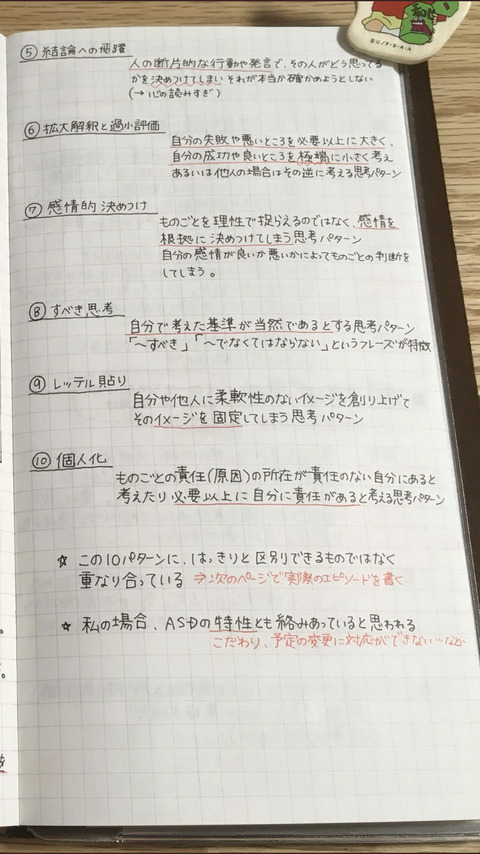 ⑤ 結論への飛躍
人の断片的な行動や発言で、その人がどう思ってる
かを決めつけてしまい それが本当か確かめようとしない
(→ 心の読みすぎ)
⑥ 拡大解釈と過小評価
自分の失敗や悪いところを必要以上に大きく、
自分の成功や良いところを極端に小さく考え
あるいは他人の場合はその逆に考える思考パターン
⑦ 感情的決めつけ
ものごとを理性で捉らえるのではなく、感情を
根拠に決めつけてしまう思考パターン
自分の感情が良いか悪いかによってものごとの判断を
してしまう。
⑧ すべき思考
自分で考えた基準が当然であるとする思考パターン
「~すべき」「~でなくてはならない」というフレーズが特徴
⑨ レッテル貼り
自分や他人に柔軟性のないイメージを創り上げて
そのイメージを固定してしまう思考パターン
⑩ 個人化
ものごとの責任(原因)の所在が責任のない自分にあると
考えたり必要以上に自分に責任があると考える思考パターン
☆ この10パターンに、はっきりと区別できるものではなく
重なり合っている ⇒次のページで実際のエピソードを書く
☆ 私の場合、ASDの特性とも絡みあっていると思われる
こだわり、予定の変更に対応ができない…など